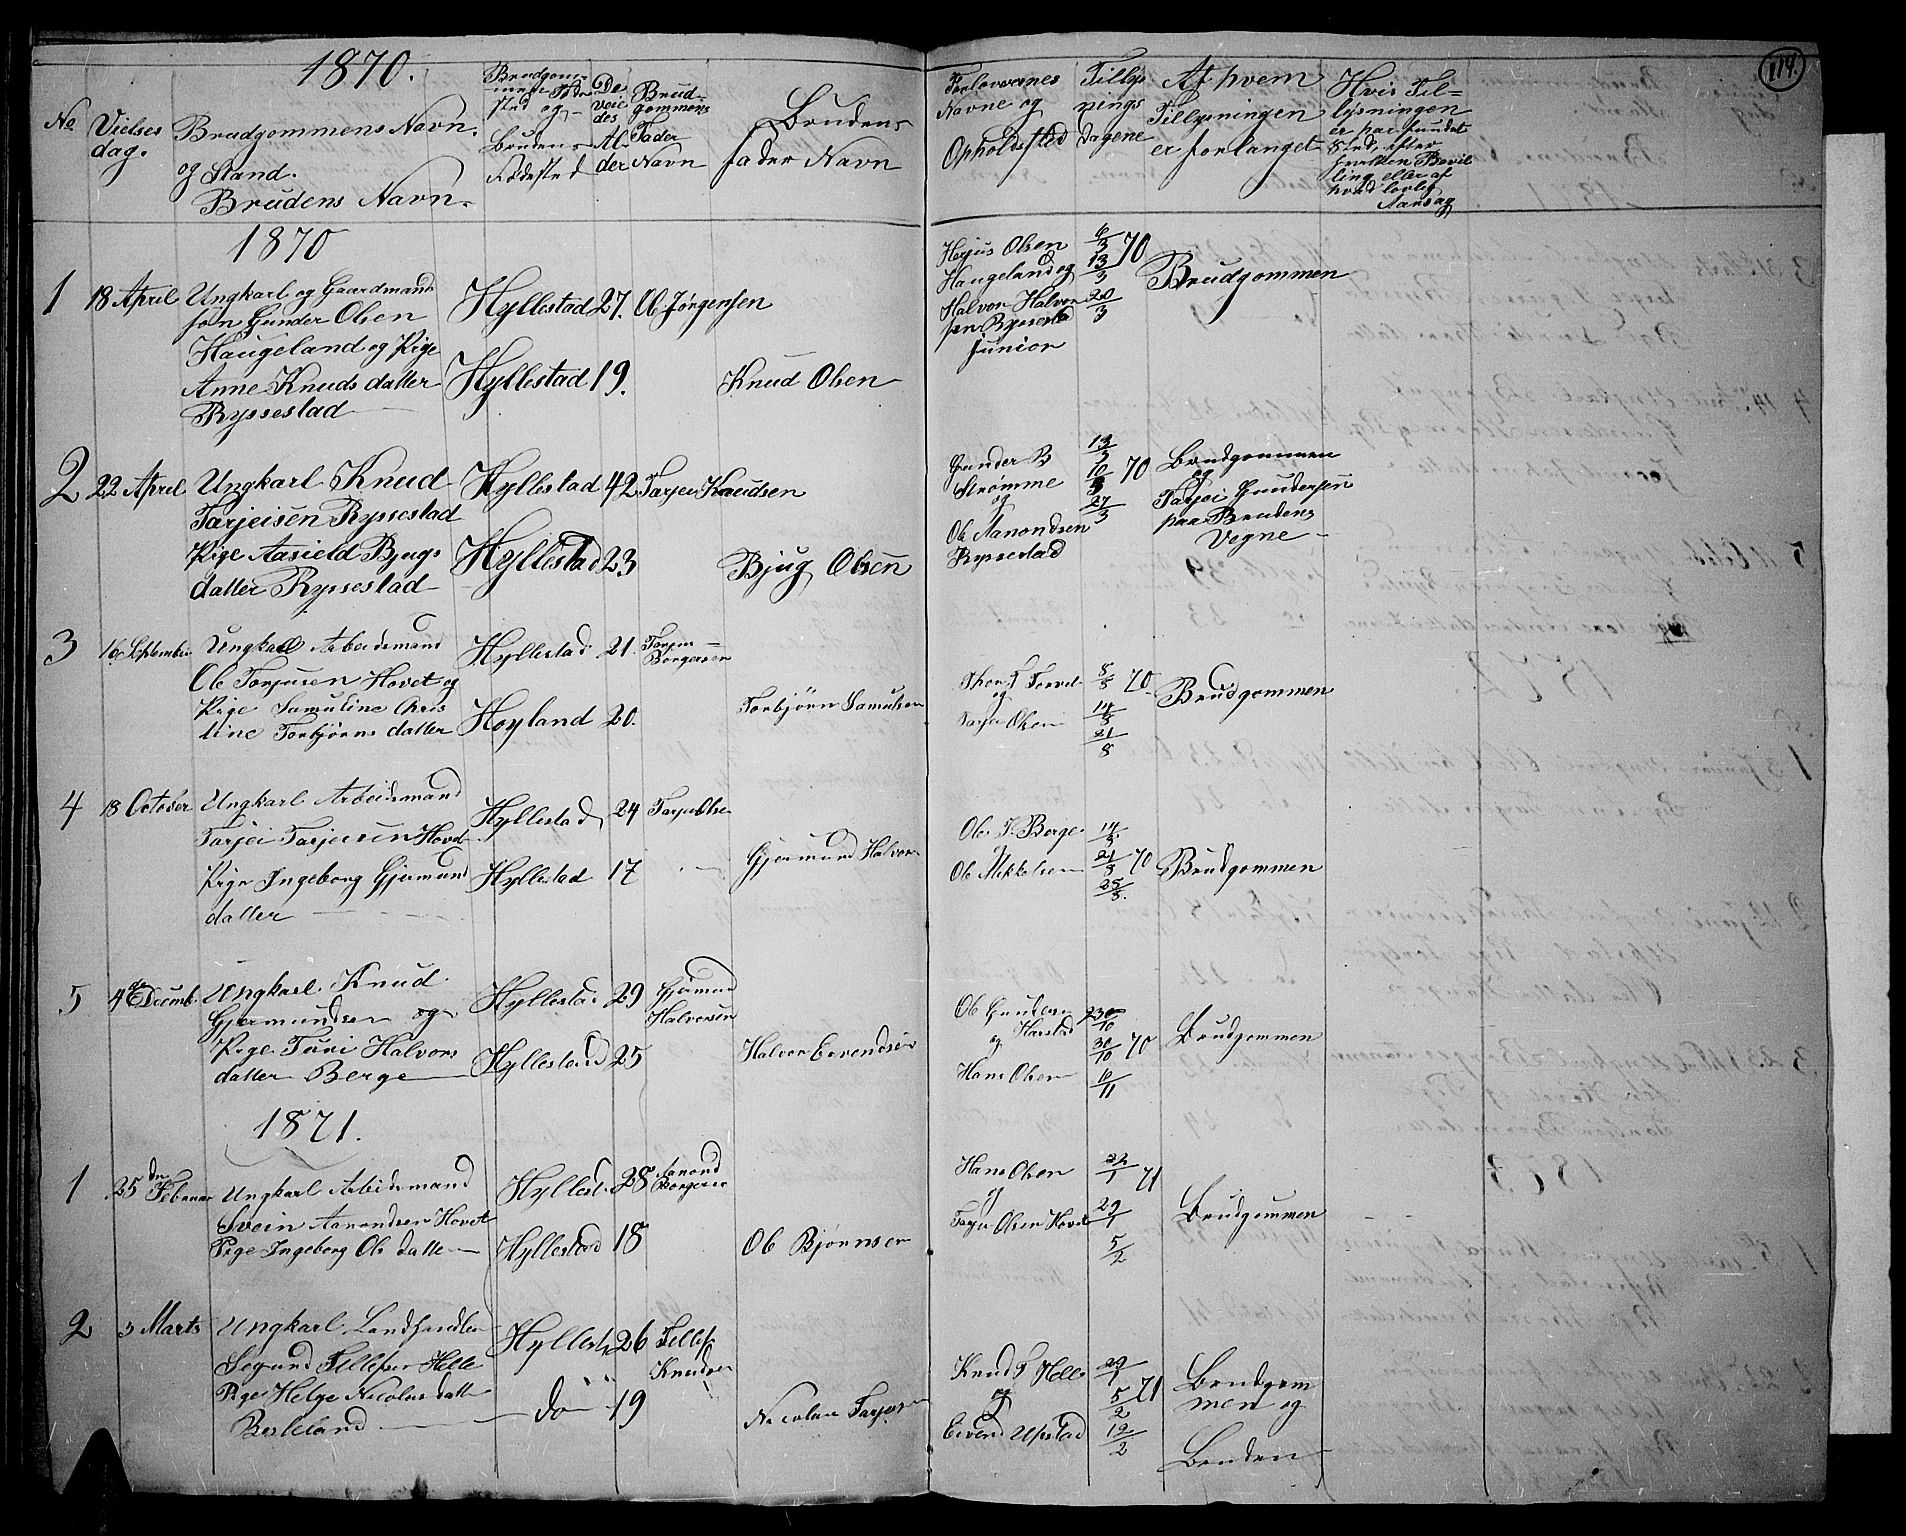 114.
1870.
No
Vielses
dag.
Brudgommens Navn
og Stand.
Brudens Navn.
Brudgom-
mensFøde
sted og
Brudens
Fødested
De
veie
des
Al-
der
Brud-
gommens
Fader
Navn
Brudens
Fader Navn
Forlovernes
Navne og
Opholdssted
Tillys
nings
Dagene
Af hvem
Tillysningen
er forlanget
Hvis Til-
lysningen
er har fundet
Sted, efter
hvilken Bevil
ling eller af
hvad lovlig
Aarsag
1870
1 18 April Ungkarl og Gaardmands
søn Gunder Olsen
Haugeland og Pige
Anne Knuds datter
Ryssestad
Hyllestad 27. Ole Jørgensen
Hyllestad 19. Knud Olsen
Olsen
Haugeland og
Halvor Halvor
sen Ryssestad
Junior
6/3 70
13/3
20/3
Brudgommen
2 22 April Ungkarl Knud
Tarjeisen Ryssestad
Pige Aasield Bjugs
datter Ryssestad
Hyllestad 42 Tarjei Knudsen
Hyllestad 23 Bjug Olsen
Gunder B
Strømme
og
Ole Aanondsen
Ryssestad
13/3
70
27/3
Brudgommen
og
Tarjei Gundersen
paa Brudens
Vegne
3 16 September Ungkarl Arbeidsmand
Ole Torjusen Hovet og
Pige Samuline Chris
tine Torbjørns datter
Hyllestad 21. Torjus
Borgersen
Høyland 20. Torbjørn Samulsen
Thor
og
Tarjei Olsen
70
14/8
21/8
Brudgommen
4 18 October Ungkarl Arbeidsmand
Tarjei Tarjeisen Hovd
Pige Ingeborg Gjermund
datter
Hyllestad 24 Tarjei Olse
Hyllestad 17 Gjermund Halvor
Ole T Berge
Ole Mikkelsen
70
Brudgommen
5 4de Decemb. Ungkarl Knud
Gjermundsen og
Pige Turi Halvors
datter Berge
Hyllestad 29 Gjermund
Halvorsen
Hyllestad 25 Halvor Eevendsen
Ole Gunders
og Harstad
Hans Olsen
30/10 70
6/11
Brudgommen
1871.
1 25de Februar Ungkarl Arbeidsmand
Svein Aanondsen Hovet
Pige Ingeborg Ols datter
Hyllest 28 Aanond
Borgerse
Hyllestad 18 Ole Bjørnsen
Hans Olsen
og
Tarjei Olsen Hovet
22/1 71
29/1
5/2
Brudgommen
2 5 Marts Ungkarl Landhandler
Segund Tellefsen Helle
Pige Helge Nicolas datt
Besteland
Hyllest 26 Tellef
Knudsen
do 19 Nicolas Tarjeisen
Knud T Helle
og
Eevend Upstad
29/1
5/2 71
12/2
Brudgom
men og
Bruden